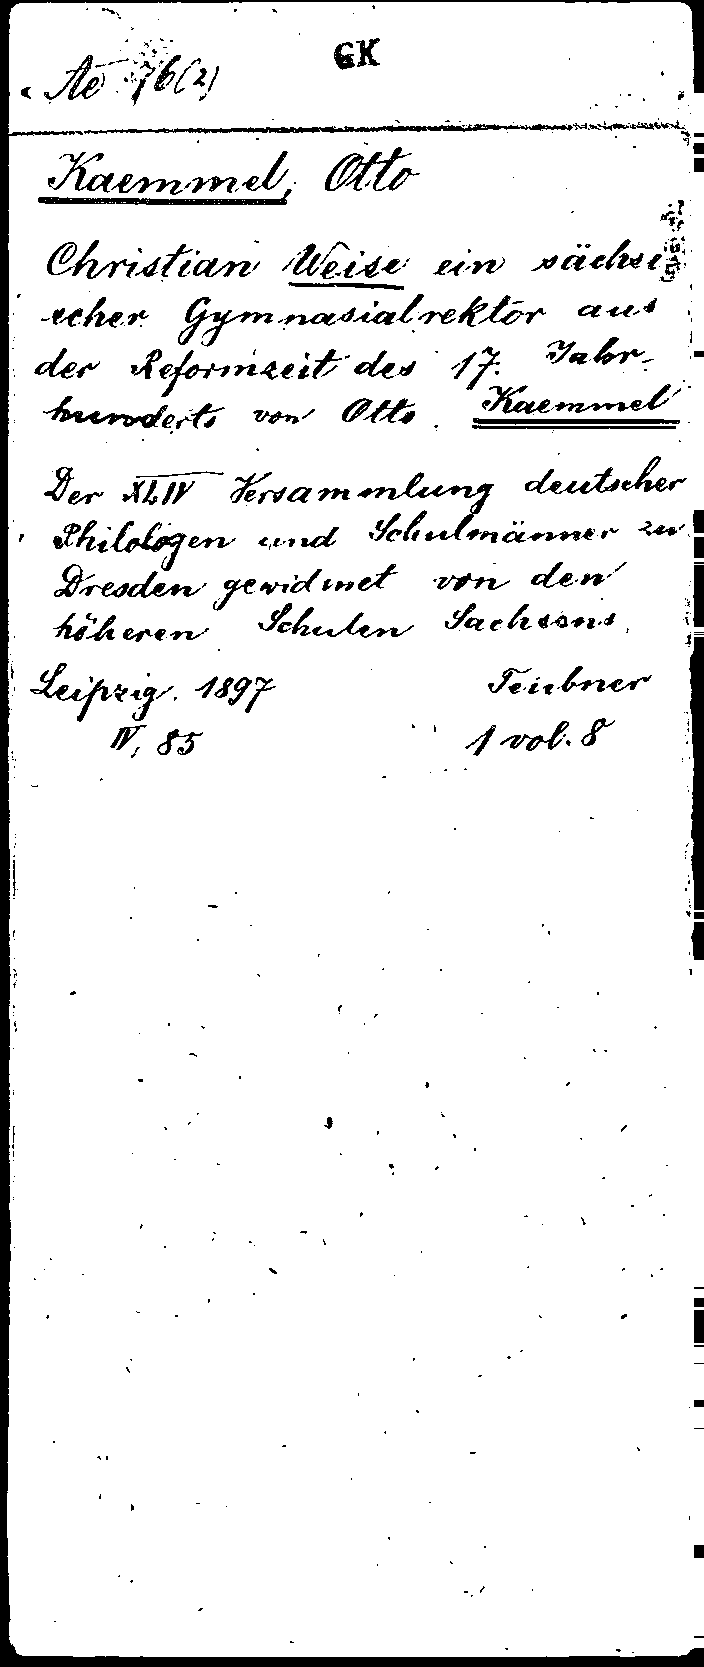 GK
Ae 76(2)
Kaemmel, Otto
Christian Weise ein sächsi
scher Gymnasialrektor aus
der Reformzeit des 17. Jahr-
hunderts von Otto Kaemmel
Der XLIV Versammlung deutscher
Philologen und Schulmänner zu
Dresden gewidmet von den
höheren Schulen Sachsens.
Leipzig. 1897 Teubner
IV, 85 1 vol. 8